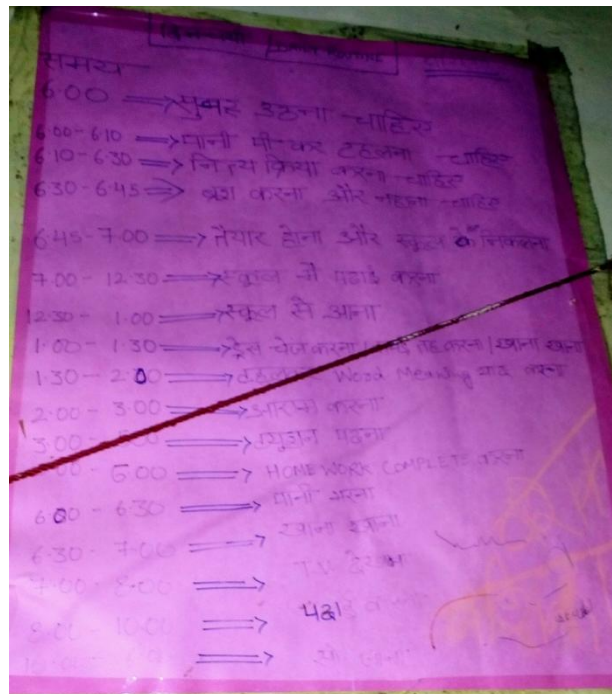 समय
6.00 ⟹ सुबह उठना चाहिए
6.00-6.10 ⟹ पानी पी कर टहलना चाहिए
6.10-6.30 ⟹ नित्य क्रिया करना चाहिए
6.30-6.45 ⟹ ब्रश करना और नहाना चाहिए
6.45-7.00 ⟹ तैयार होना और स्कूल के निकलना
7.00-12.30 ⟹ स्कूल में पढाई करना
12.30-1.00 ⟹ स्कूल से आना
1.00-1.30 ⟹ ड्रेस चेंज करना तह करना / खाना खाना
1.30-2.00 ⟹ Word Meaning याद करना
2.00-3.00 ⟹ आराम करना
3.00- ⟹ ट्यूशन पढना
6.00 ⟹ HOME WORK COMPLETE करना
6.00-6.30 ⟹ पानी भरना
6.30-7.00 ⟹ खाना खाना
7.00-8.00 ⟹ देखना
8.00-10.00 ⟹ पढा
10.00 ⟹